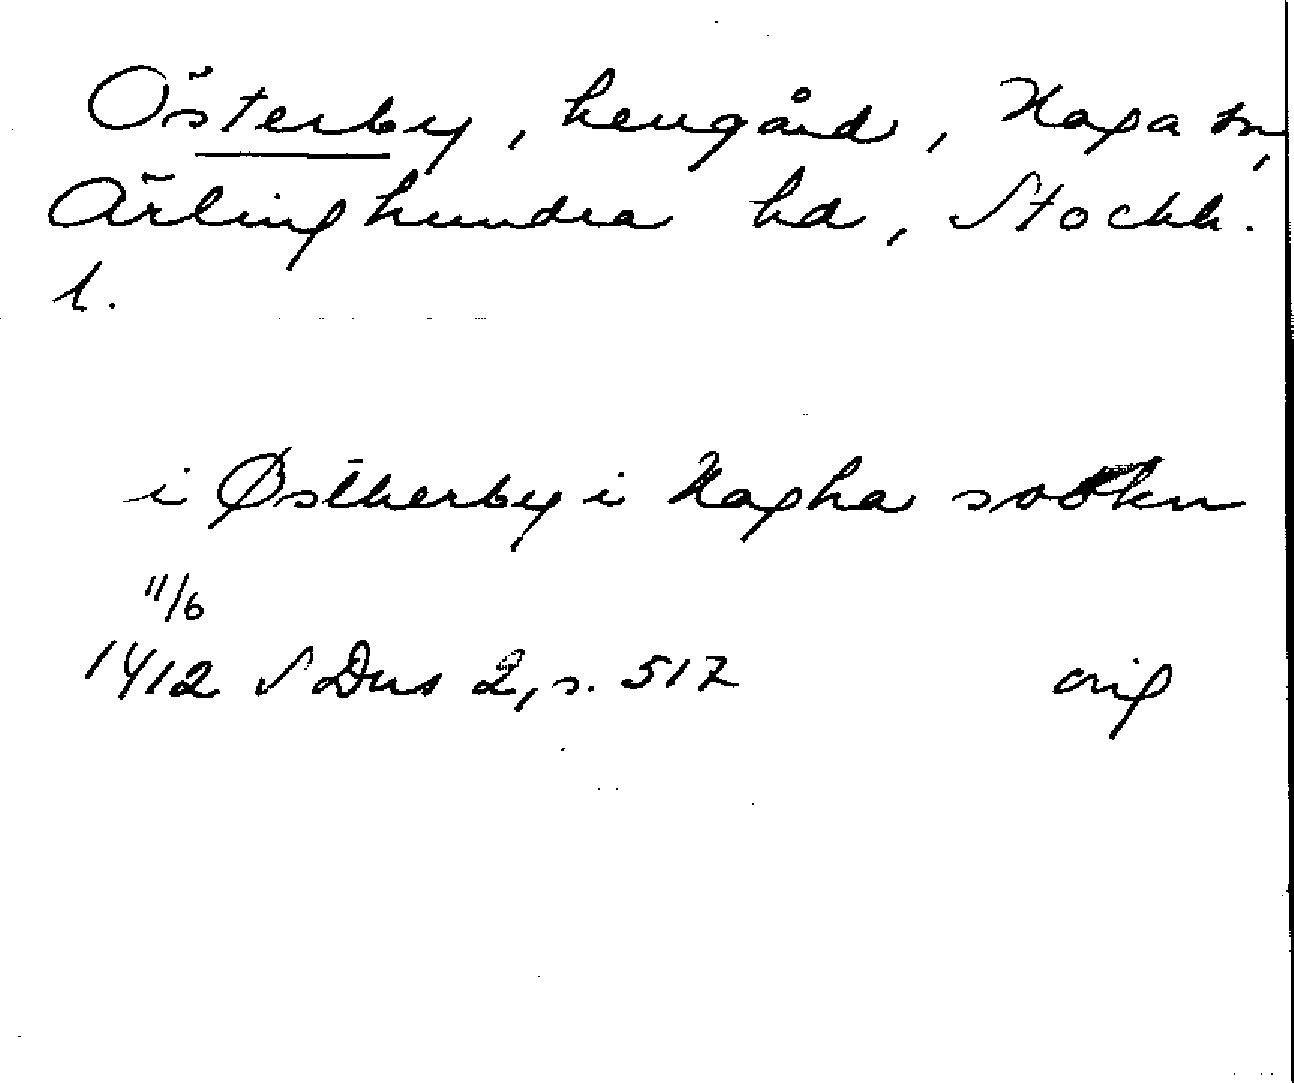 Österby, herrgård, Haga sn,
Ärlinghundra hd, Stockh.
l.
i Østherby i Hagha
11/6
1412 SDns 2, s. 517 orig